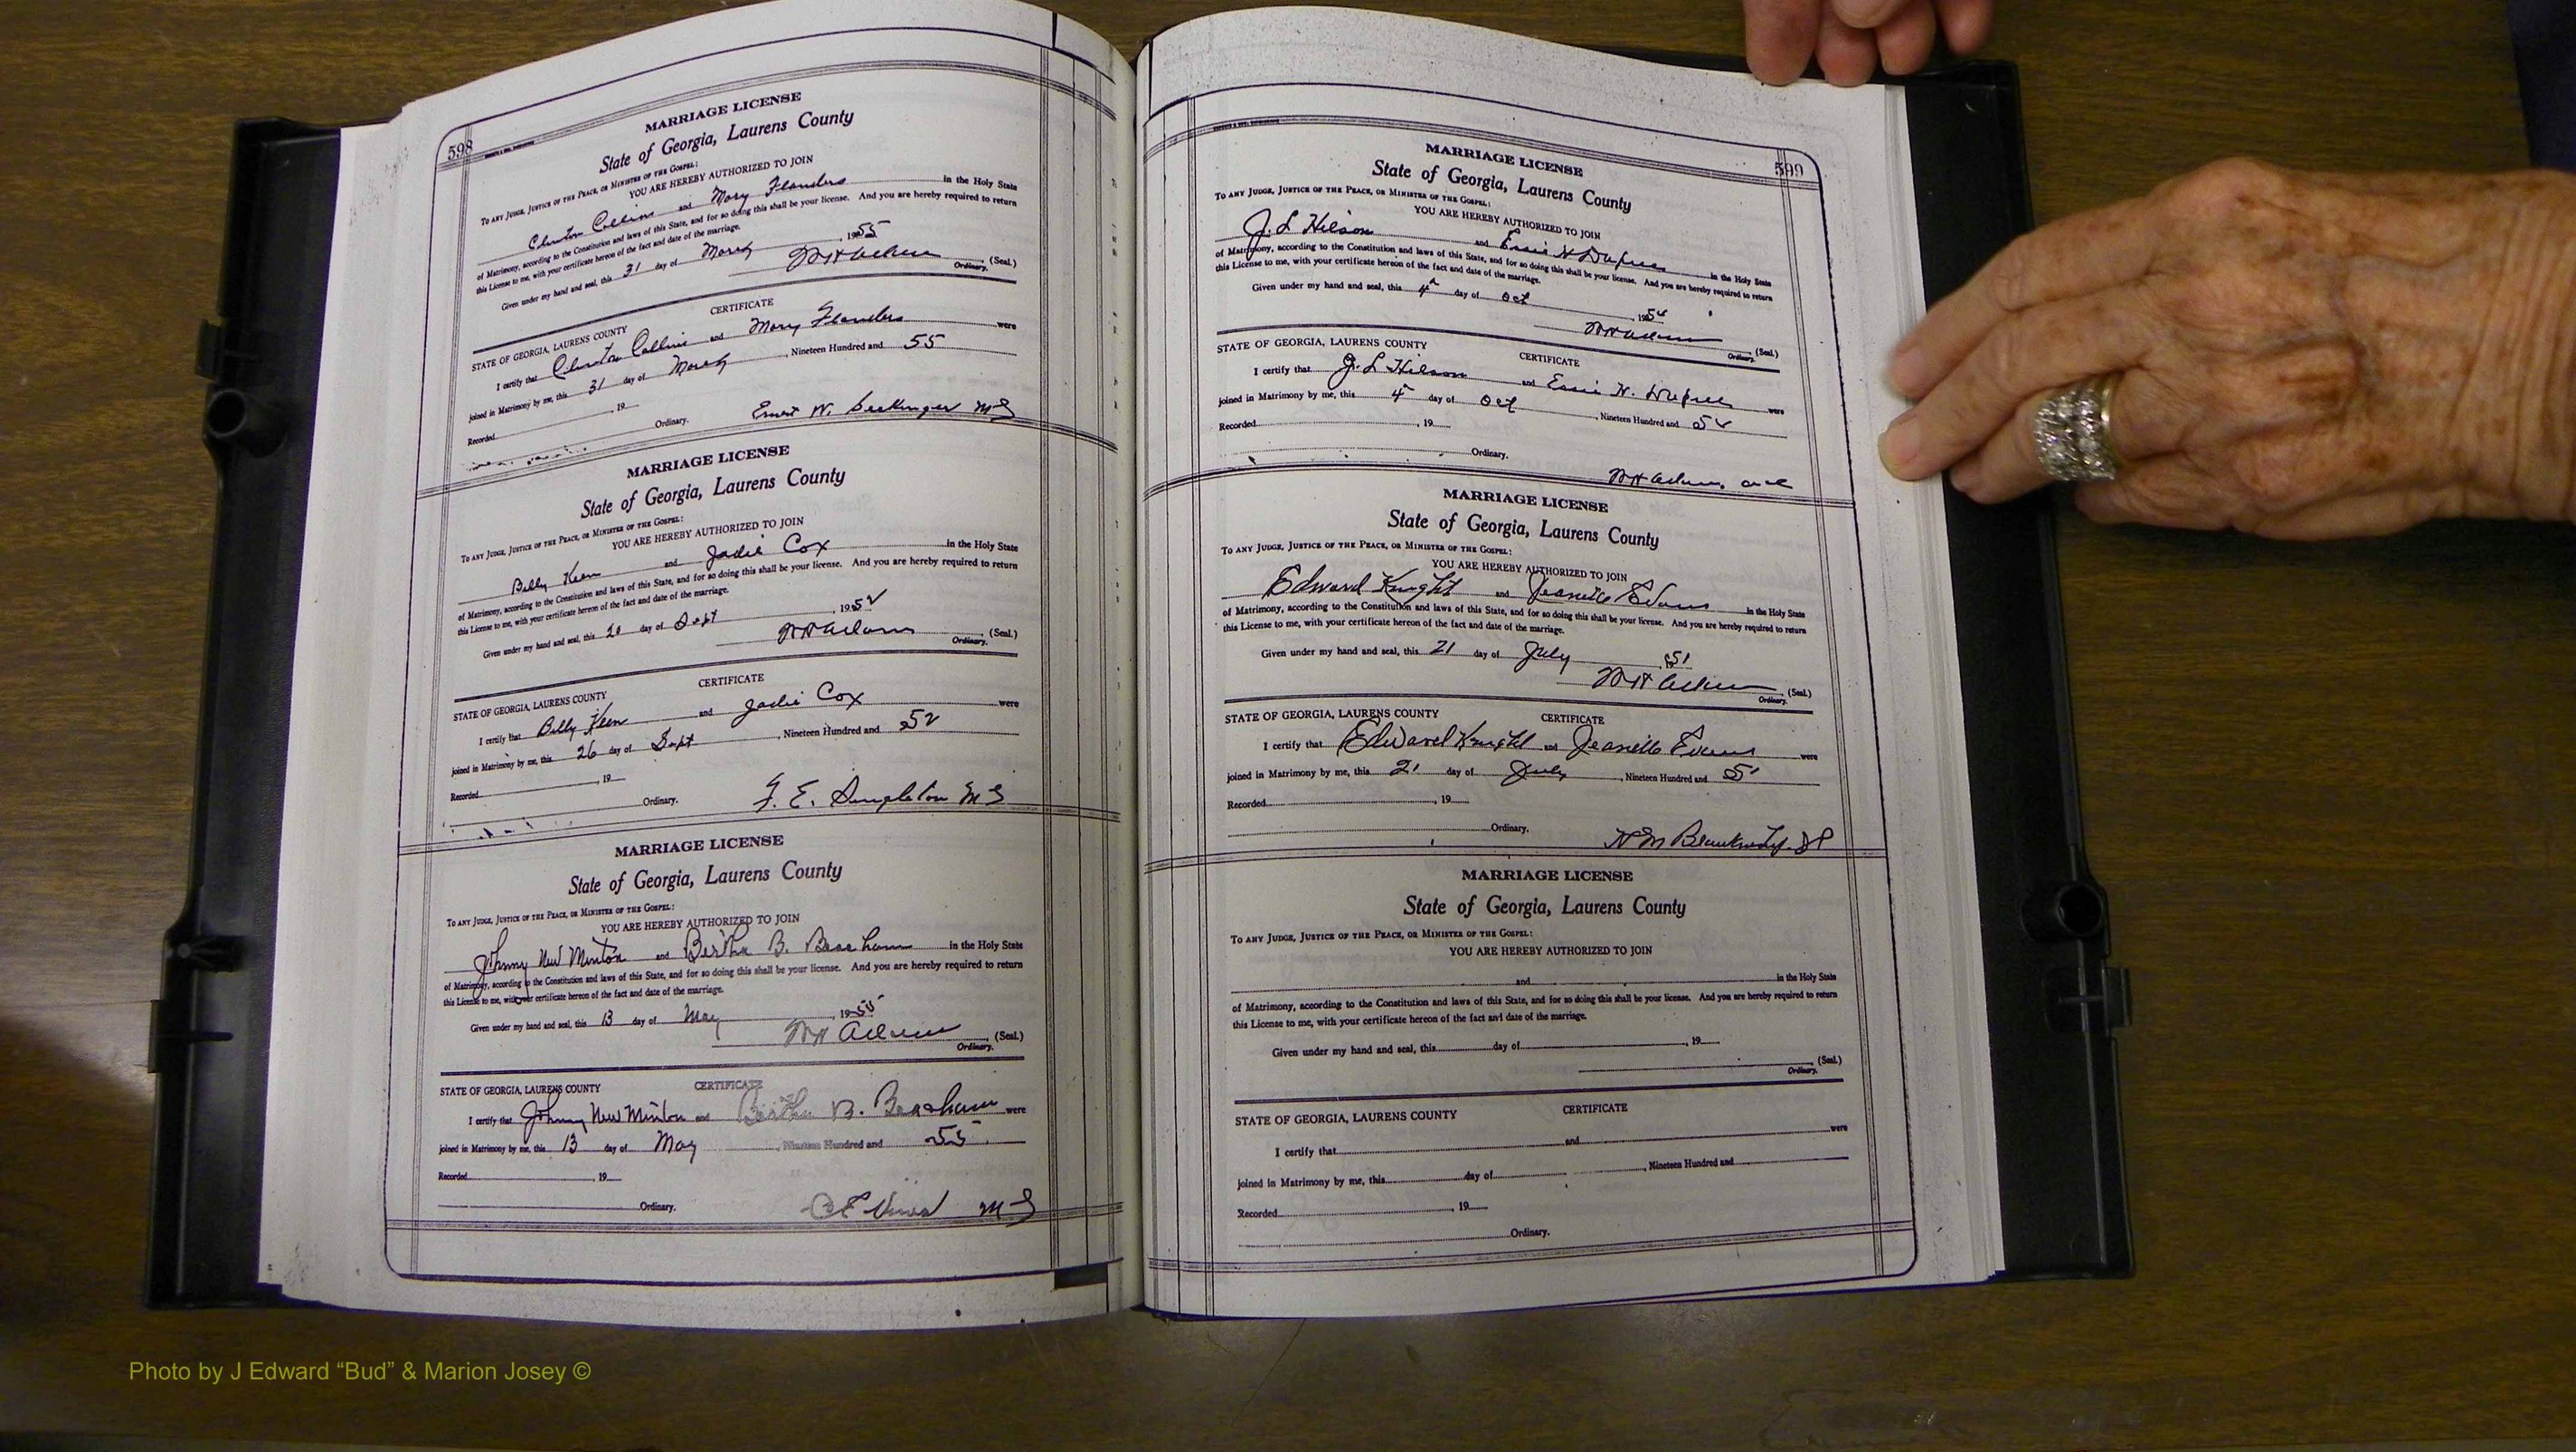 598
MARRIAGE LICENSE
State of Georgia, Laurens County
To any Judge, Justice of the Peace, or Minister of the Gospel:
YOU ARE HEREBY AUTHORIZED TO JOIN
Clinton Collins and Mary Flanders in the Holy State
of Matrimony, according to the Constitution and laws of this State, and for so doing this shall be your license. And you are hereby required to return
this License to me, with your certificate hereon of the fact and date of the marriage.
Given under my hand and seal, this 31 day of March, 1955
(Seal.)
Ordinary.
CERTIFICATE
STATE OF GEORGIA, LAURENS COUNTY
I certify that Clinton Collins and Mary Flanders were
joined in Matrimony by me, this 31 day of March, Nineteen Hundred and 55
Recorded, 19
Ordinary. Ernest W. MG
MARRIAGE LICENSE
State of Georgia, Laurens County
To any Judge, Justice of the Peace, or Minister of the Gospel:
YOU ARE HEREBY AUTHORIZED TO JOIN
Billy Keen and Jadie Cox in the Holy State
of Matrimony, according to the Constitution and laws of this State, and for so doing this shall be your license. And you are hereby required to return
this License to me, with your certificate hereon of the fact and date of the marriage.
Given under my hand and seal, this day of Sept, 1952
WH Adams (Seal.)
Ordinary.
CERTIFICATE
STATE OF GEORGIA, LAURENS COUNTY
I certify that Billy Keen and Jadie Cox were
joined in Matrimony by me, this 26 day of Sept, Nineteen Hundred and 52
Recorded, 19
Ordinary. E. Singleton MG
MARRIAGE LICENSE
State of Georgia, Laurens County
To any Judge, Justice of the Peace, or Minister of the Gospel:
YOU ARE HEREBY AUTHORIZED TO JOIN
Johnny New Minton and Bertha B. Beacham in the Holy State
of Matrimony, according to the Constitution and laws of this State, and for so doing this shall be your license. And you are hereby required to return
this License to me, with your certificate hereon of the fact and date of the marriage.
Given under my hand and seal, this 13 day of May, 1955
WH Adams (Seal.)
Ordinary.
STATE OF GEORGIA, LAURENS COUNTY CERTIFICATE
I certify that Johnny New Minton and Bertha B. Beacham were
joined in Matrimony by me, this 13 day of May, Nineteen Hundred and 55
Recorded, 19
Ordinary. MG
599
MARRIAGE LICENSE
State of Georgia, Laurens County
To any Judge, Justice of the Peace, or Minister of the Gospel:
YOU ARE HEREBY AUTHORIZED TO JOIN
J. L Hilson and Essie W Dupree in the Holy State
of Matrimony, according to the Constitution and laws of this State, and for so doing this shall be your license. And you are hereby required to return
this License to me, with your certificate hereon of the fact and date of the marriage.
Given under my hand and seal, this 4 day of Oct
WH Adams (Seal.)
Ordinary.
STATE OF GEORGIA, LAURENS COUNTY CERTIFICATE
I certify that J. L Hilson and Essie W. Dupree were
joined in Matrimony by me, this 4 day of Oct, Nineteen Hundred and
Recorded, 19
Ordinary.
WH Adams,
MARRIAGE LICENSE
State of Georgia, Laurens County
To any Judge, Justice of the Peace, or Minister of the Gospel:
YOU ARE HEREBY AUTHORIZED TO JOIN
Edward Knight and Jeanette Evans in the Holy State
of Matrimony, according to the Constitution and laws of this State, and for so doing this shall be your license. And you are hereby required to return
this License to me, with your certificate hereon of the fact and date of the marriage.
Given under my hand and seal, this 21 day of July, 51
WH Adams (Seal.)
Ordinary.
STATE OF GEORGIA, LAURENS COUNTY CERTIFICATE
I certify that Edward Knight and Jeanette Evans were
joined in Matrimony by me, this 21 day of July, Nineteen Hundred and 51
Recorded, 19
Ordinary.
JP
MARRIAGE LICENSE
State of Georgia, Laurens County
To any Judge, Justice of the Peace, or Minister of the Gospel:
YOU ARE HEREBY AUTHORIZED TO JOIN
and in the Holy State
of Matrimony, according to the Constitution and laws of this State, and for so doing this shall be your license. And you are hereby required to return
this License to me, with your certificate hereon of the fact and date of the marriage.
Given under my hand and seal, this day of, 19
(Seal.)
Ordinary.
STATE OF GEORGIA, LAURENS COUNTY CERTIFICATE
I certify that and were
joined in Matrimony by me, this day of, Nineteen Hundred and
Recorded, 19
Ordinary.
Photo by J Edward “Bud” & Marion Josey ©